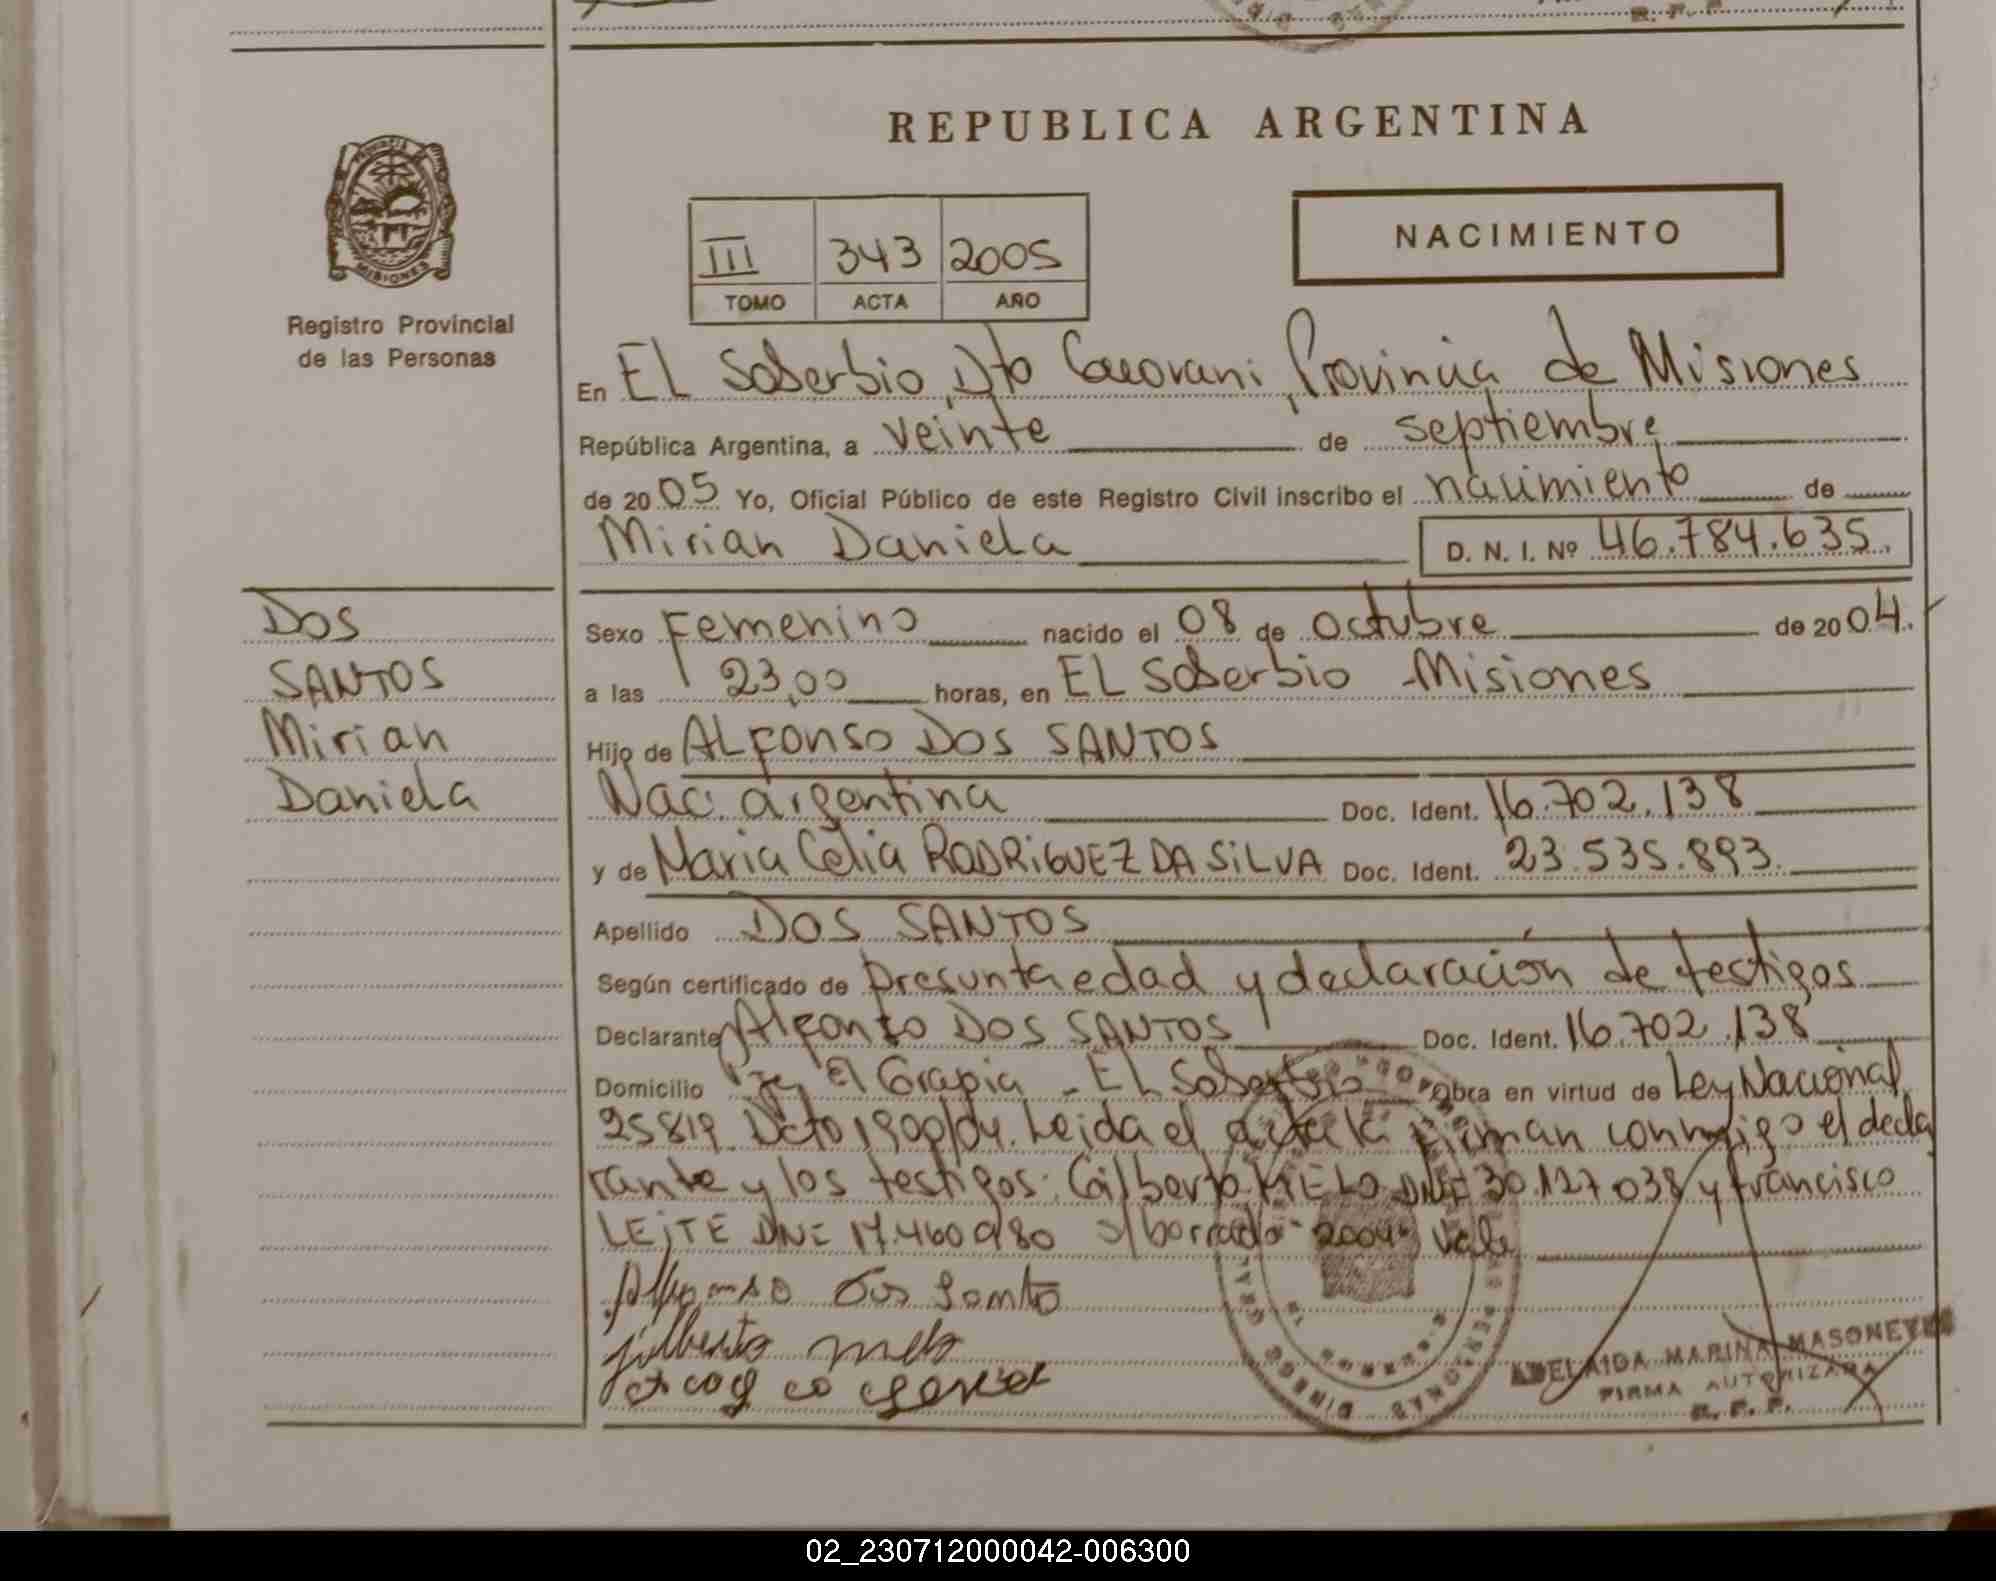 REPUBLICA ARGENTINA
PROVINCIA DE
MISIONES
Registro Provincial
de las Personas
III 343 2005
TOMO ACTA AÑO
NACIMIENTO
En EL Soberbio, Dto Guarani, Provincia de Misiones
República Argentina, a veinte de septiembre
de 2005 Yo, Oficial Público de este Registro Civil inscribo el nacimiento de
Mirian Daniela D. N. I. Nº 46.784.635.
DOS
SANTOS
Mirian
Daniela
Sexo Femenino nacido el 08 de octubre de 2004.
a las 23,00 horas, en EL Soberbio Misiones
Hijo de ALFONSO DOS SANTOS
Nac. argentina Doc. Ident. 16.702.138
y de Maria Celia RODRiGUEZ DA SiLVA Doc. Ident. 23.535.893.
Apellido DOS SANTOS
Según certificado de presunta edad y declaración de testigos
Declarante Alfonso DOS SANTOS Doc. Ident. 16.702.138
Domicilio El Grapia - EL Soberbio Obra en virtud de Ley Nacional
25819 Dcto 1900/04. Leida el acta la firman conmigo el decla
rante y los testigos: Gilberto MELO DNI 30.127.038 y Francisco
LEiTE DNI 17.460.980 s/borrado "2004" Vale
Alfonso Dos Santo
Jilberto melo
ADELAIDA MARINA MASONEYRO
FIRMA AUTORIZADA
R. P. P.
02_230712000042-006300